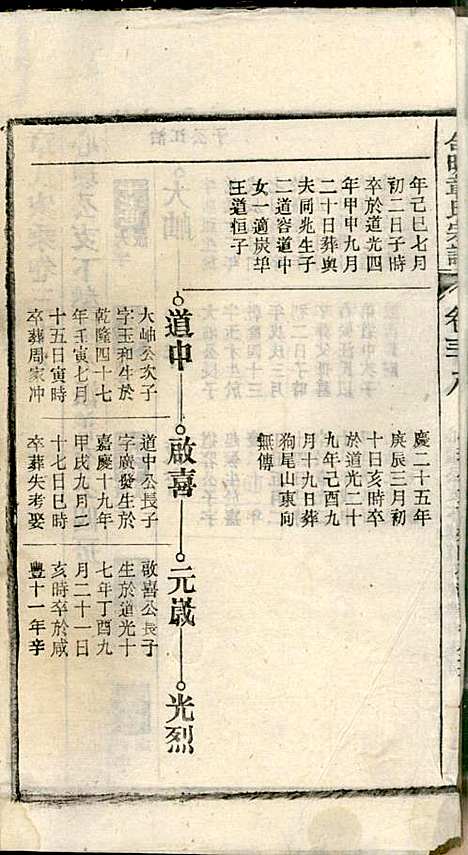 年己巳七月
初二日子時
卒於道光四
年甲申九月
二十日葬與
夫同兆生子
二道容道中
女一適炭埠
王道恒子
慶二十五年
庚辰三月初
十日亥時卒
於道光二十
九年己酉九
月十九日葬
狗尾山東向
無傳
道中
大岫公次子
字玉和生於
乾隆四十七
年壬寅七月
十五日寅時
卒葬周家冲
啟喜
道中公長子
字廣發生於
嘉慶十九年
甲戌九月二
十七日巳時
卒葬失考娶
元嵗
啟喜公長子
生於道光十
七年丁酉九
月二十一日
亥時卒於咸
豐十一年辛
光烈